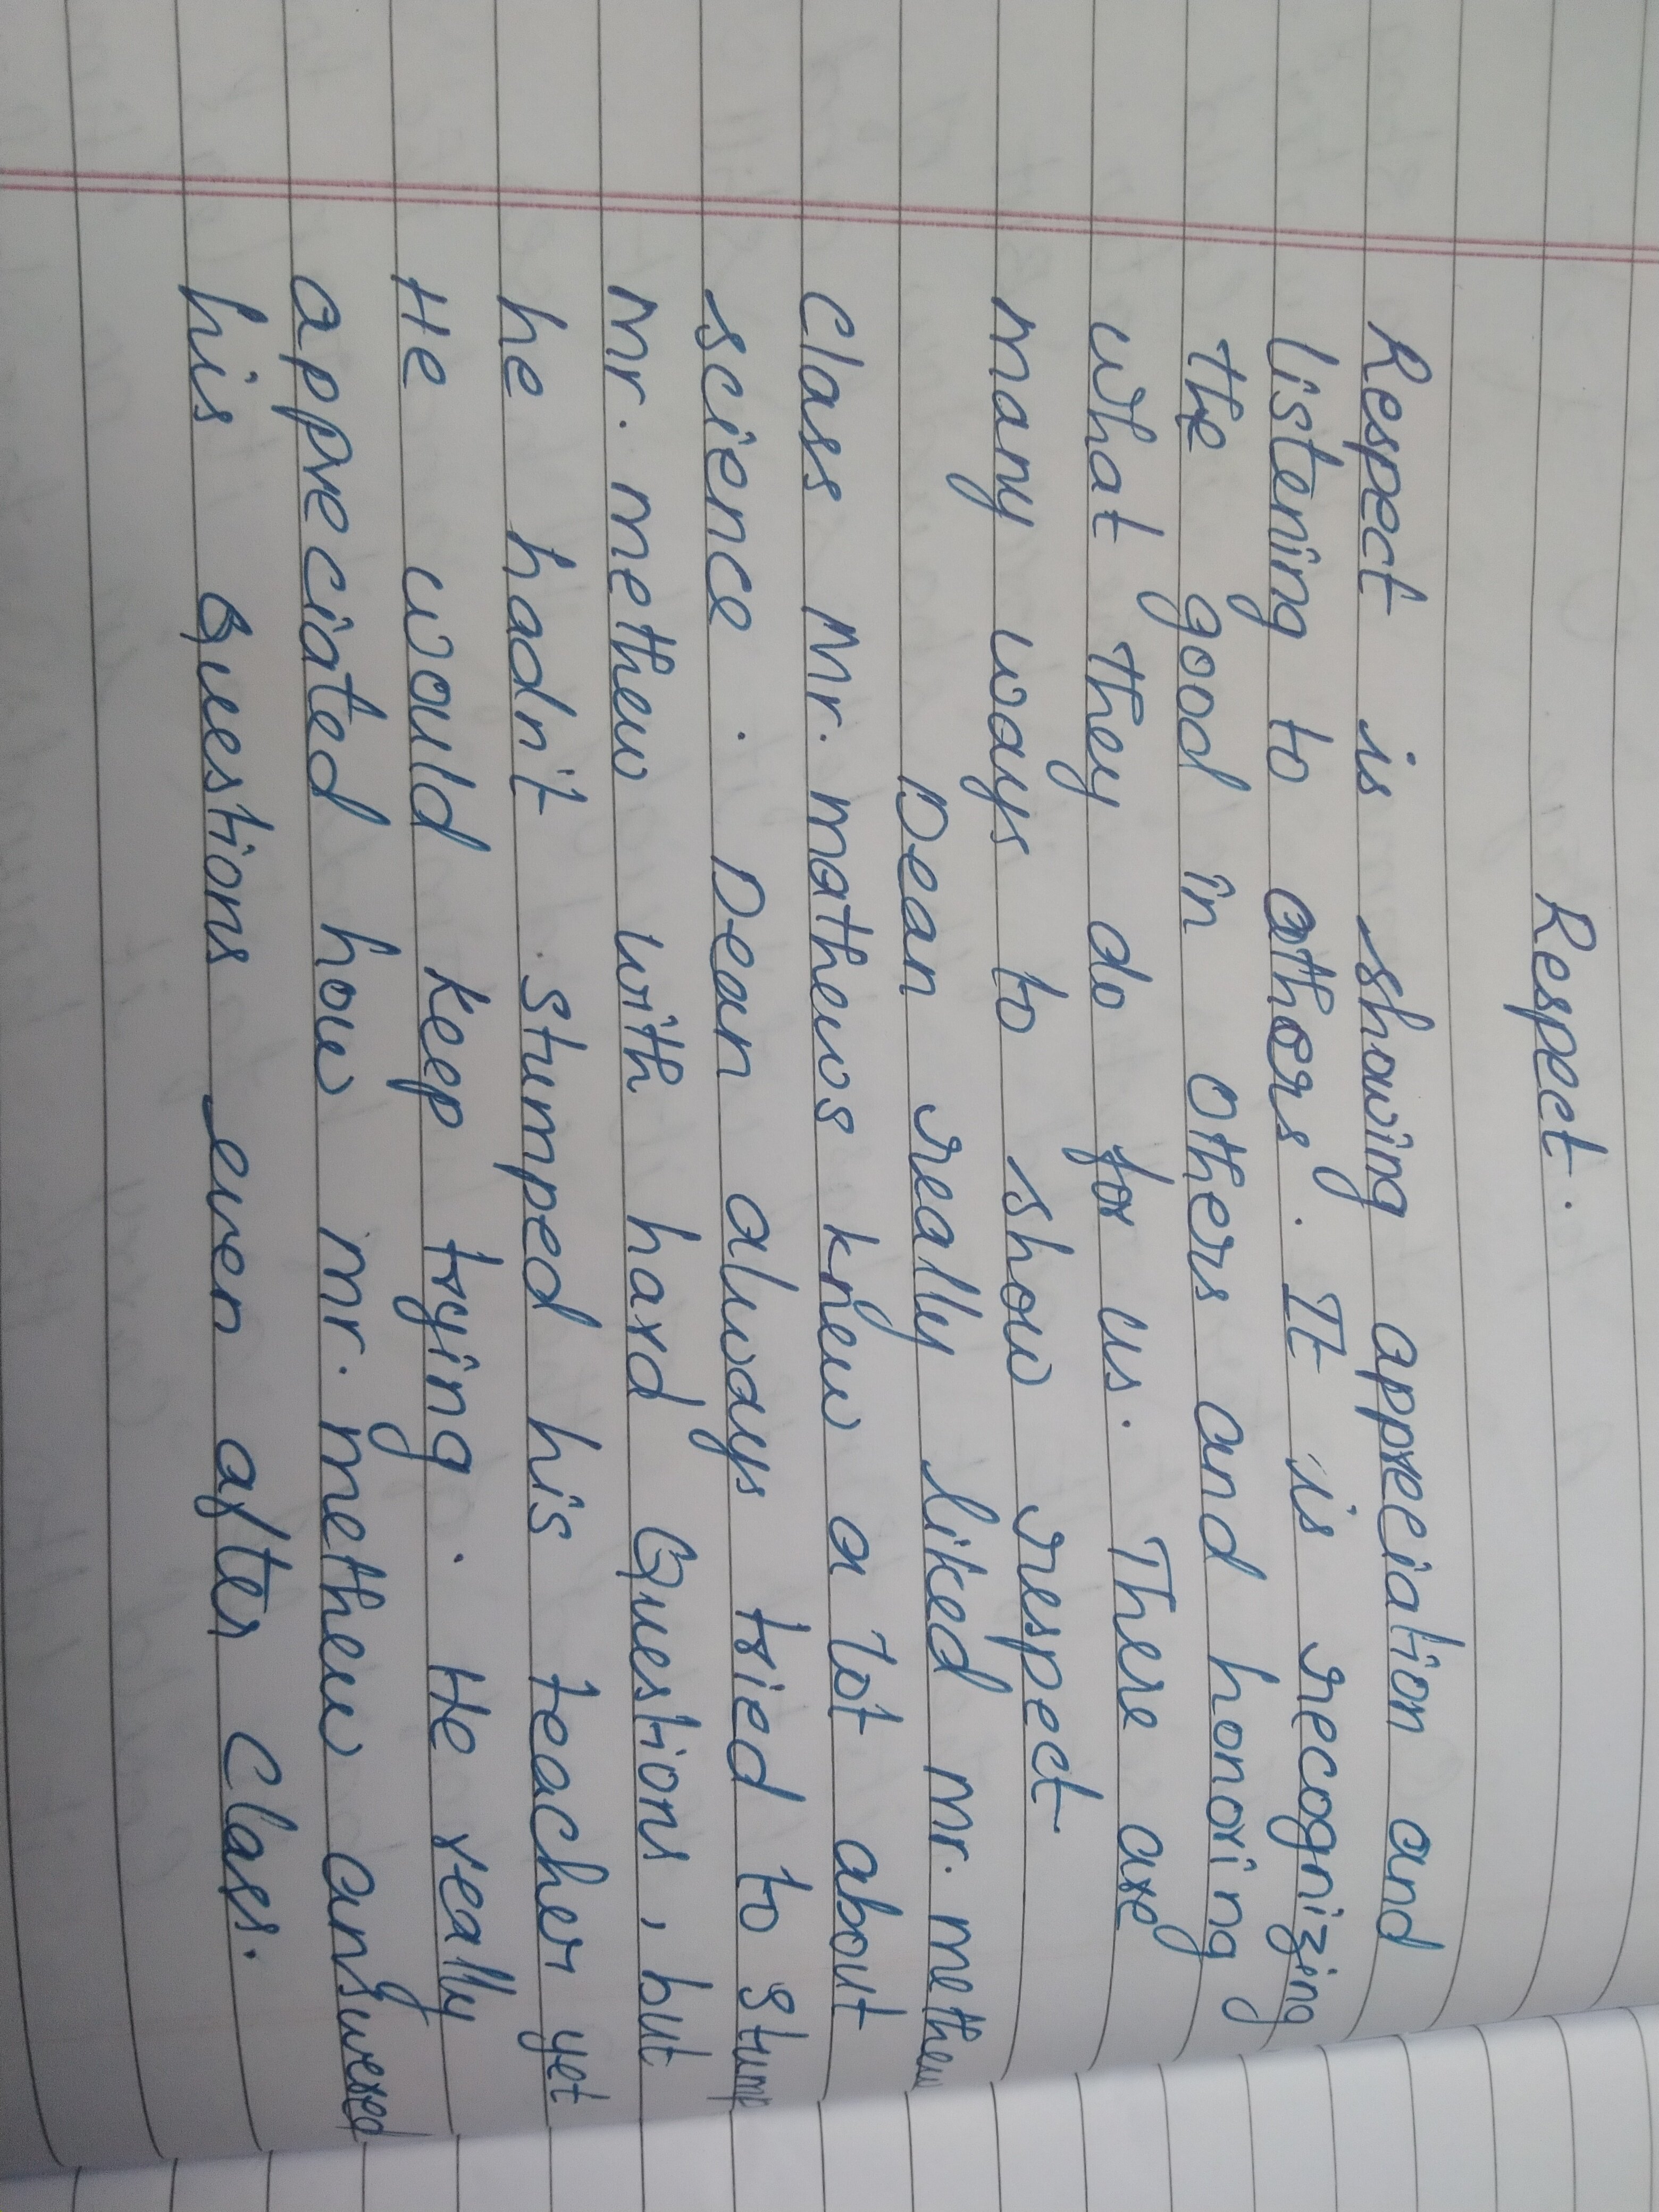 Respect.
Respect is showing appreciation and
listening to others. It is recognizing
the good in others and honoring
what they do for us. There are
many ways to show respect
Dean really liked Mr. methew
Class Mr. mathews knew a lot about
science. Dean always tried to stump
Mr. methew with hard Questions, but
he hadn't stumped his teacher yet
He would keep trying. He really
appreciated how Mr. methew answered
his Questions even after Class.